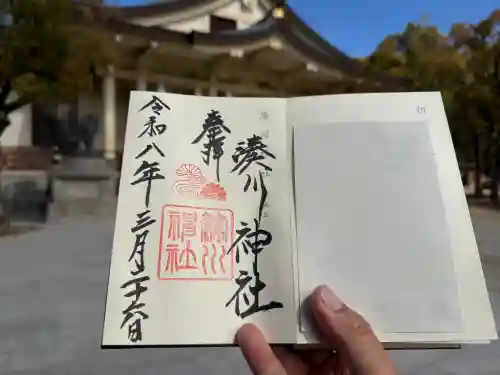 奉拝
湊川神社
令和八年三月二十六日
湊川
神社
切